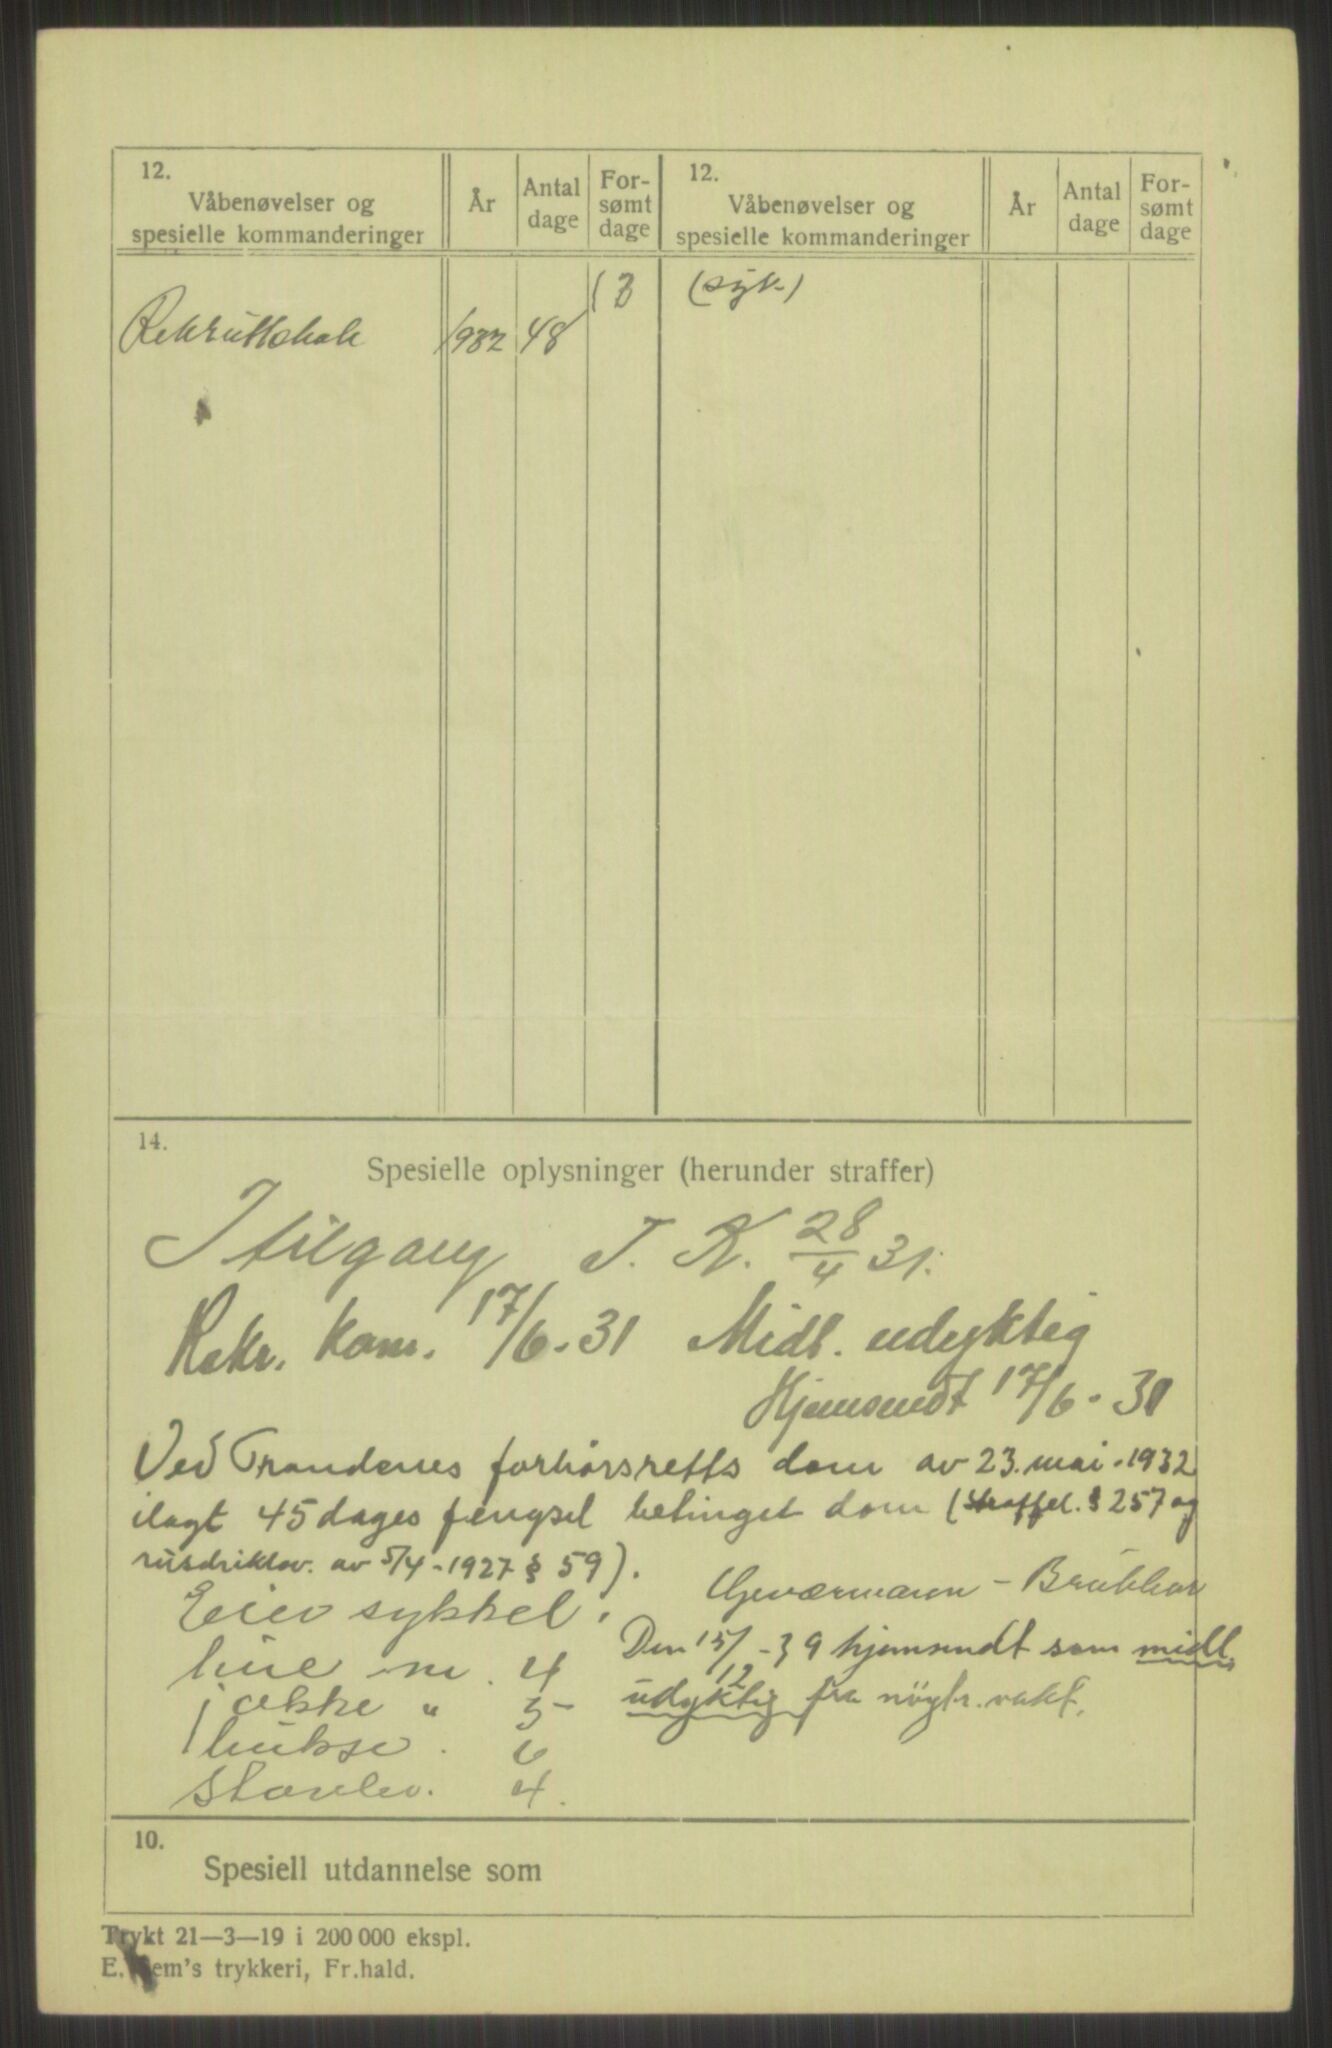 12.
Våbenøvelser og
spesielle kommanderinger
År
Antal
dage
For-
sømt
dage
12.
Våbenøvelser og
spesielle kommanderinger
År
Antal
dage
For-
sømt
dage
(3 (syk.)
Rekruttskole 1932 48
14.
Spesielle oplysninger (herunder straffer)
I tilgang I. R. 28/4 31.
Rekr. kom. 17/6-31 Midl. udyktig
Hjemsendt 17/6-31
Ved Trondenes forhørsretts dom av 23. mai-1932
ilagt 45 dages fengsel betinget dom (straffel. § 257 og
rusdriklov. av 5/4-1927 § 59).
Geværmann -
Eier sykkel.
Den 15/12-39 hjemsendt som midl.
udyktig fra nøytr. vakt.
lue m. 4
jakke " 5-
bukse. 6
støvler. 4.
10.
Spesiell utdannelse som
Trykt 21—3—19 i 200 000 ekspl.
E. Sem's trykkeri, Fr.hald.